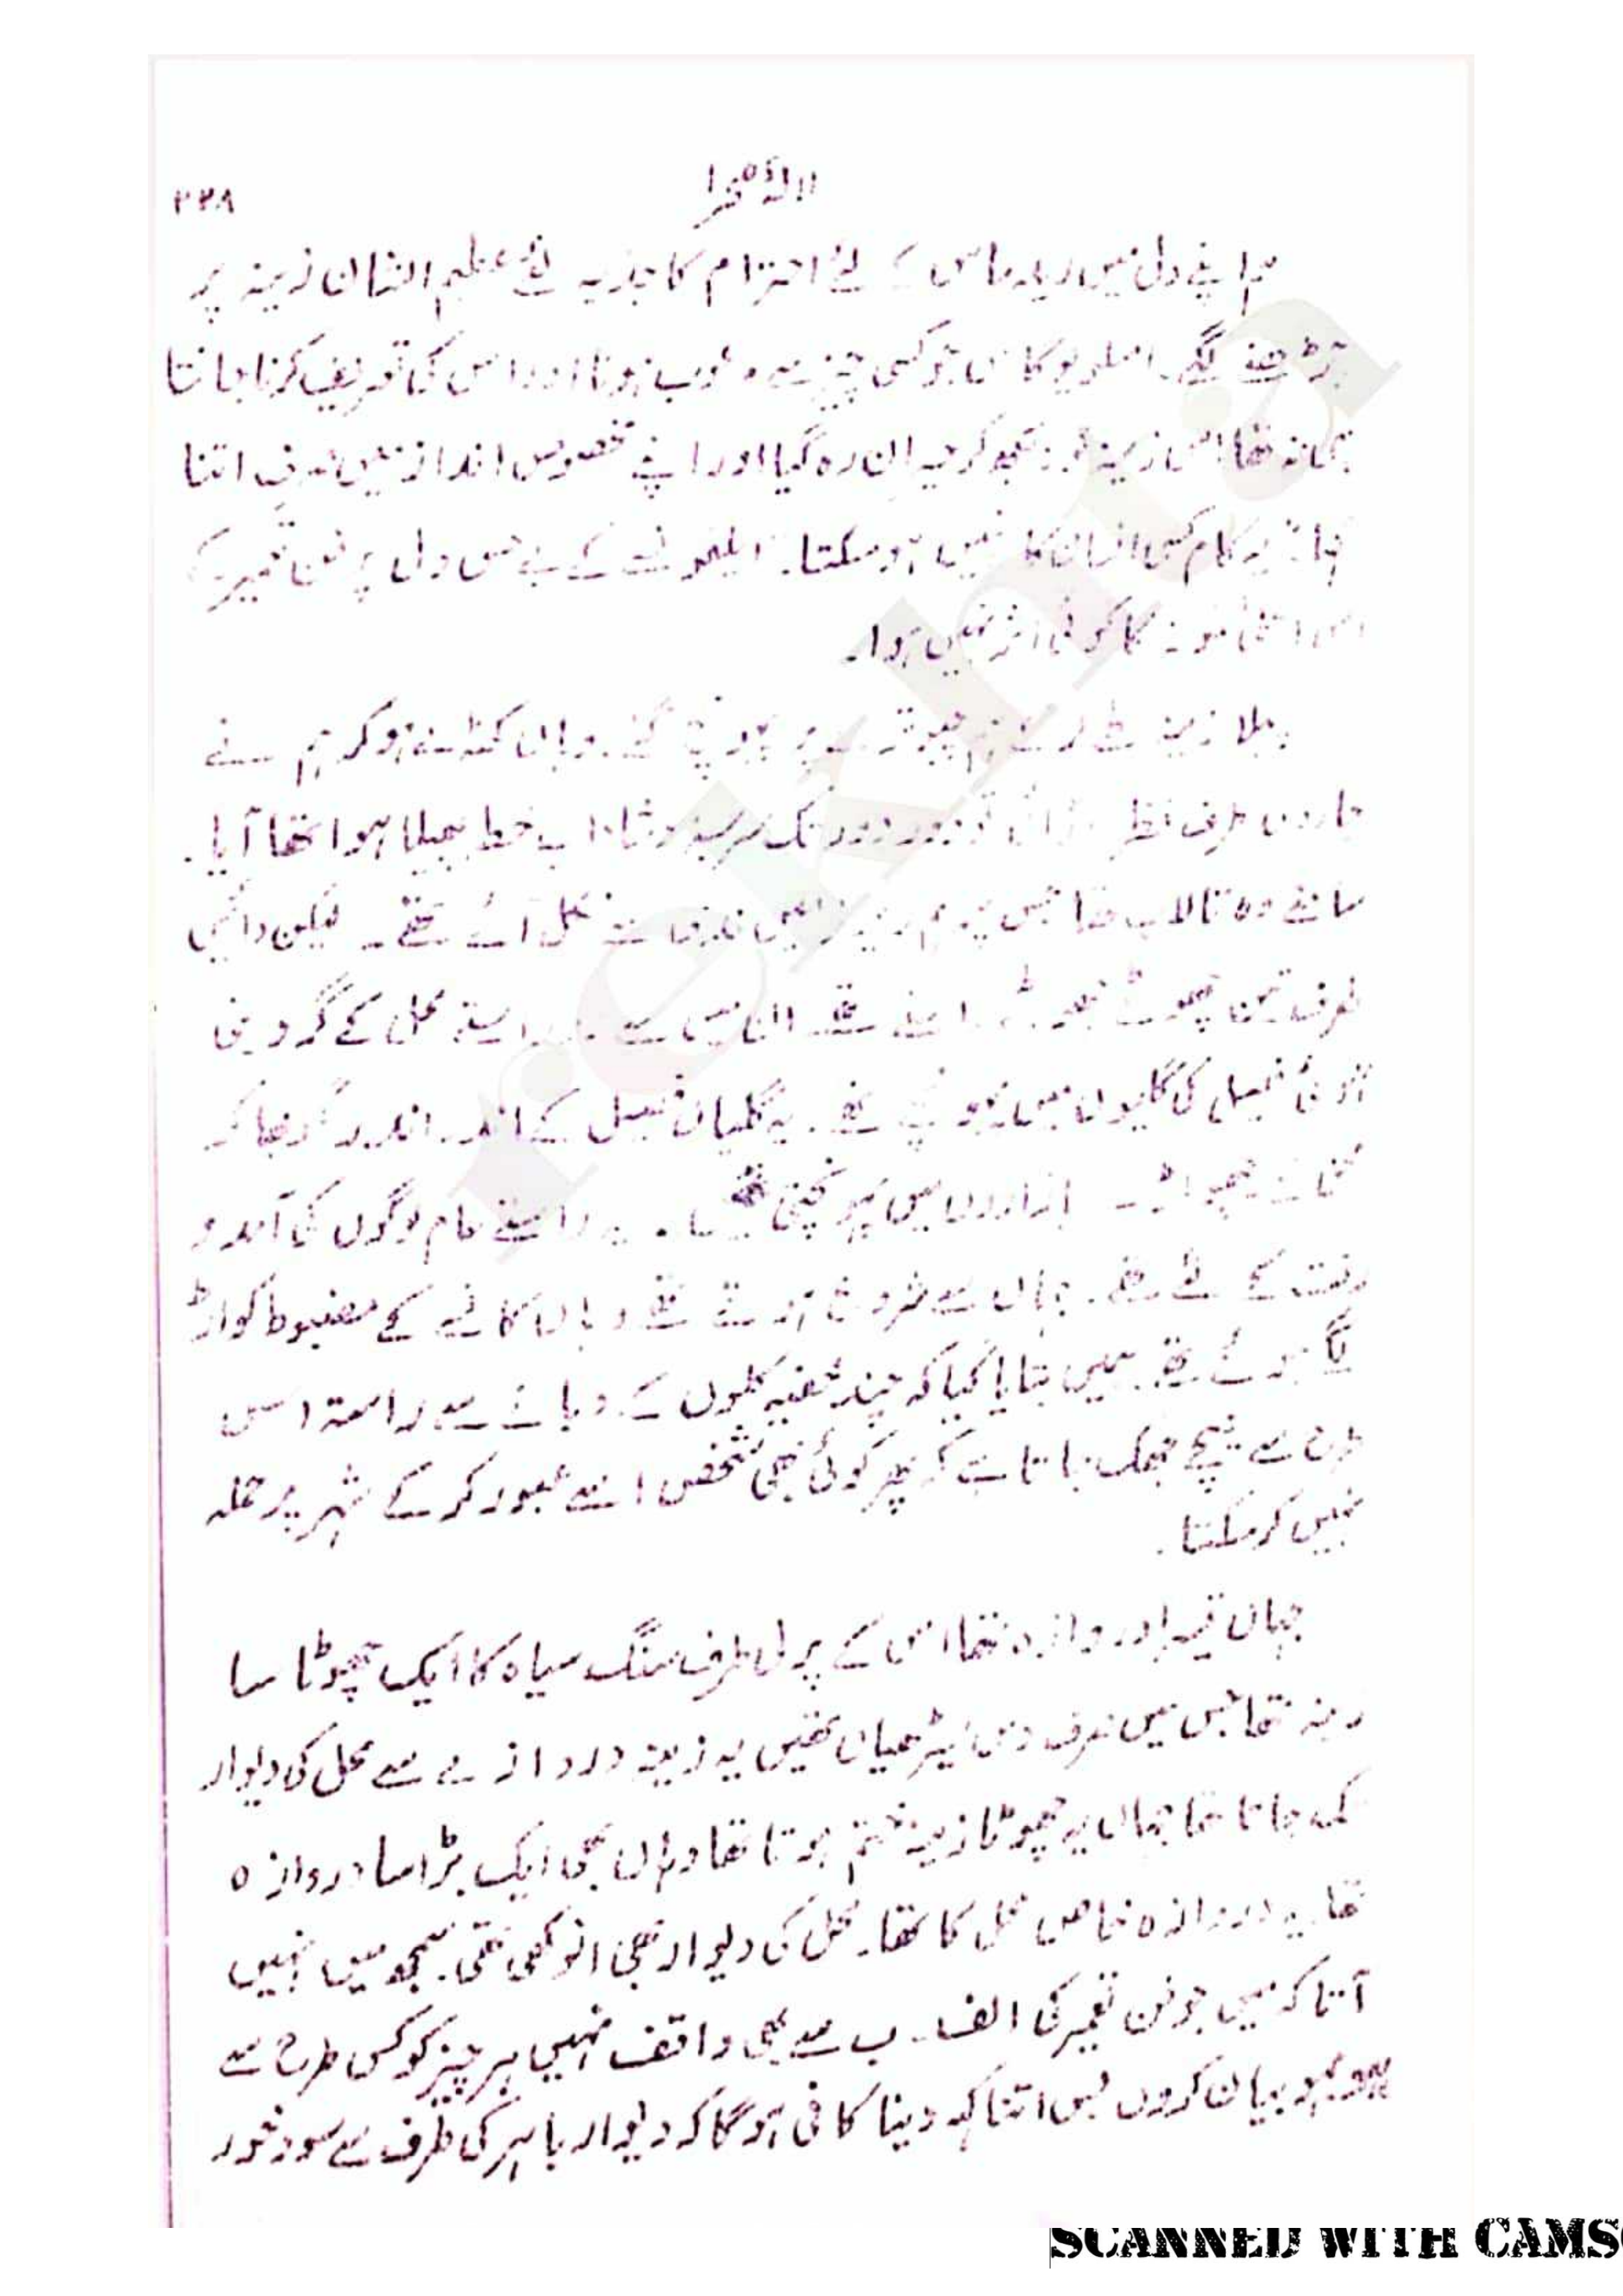 لالۂ صحرا
۲۲۸
ہم اپنے دل میں کے لئے احترام کا جذبہ لئے عظیم الشان زینہ پر
چڑھنے لگے۔ جو کسی چیز سے مرعوب ہونا اور اس کی تعریف کرنا جانتا
ہی نہ تھا اس زینہ کو دیکھ کر حیران رہ گیا اور اپنے مخصوص انداز میں صرف اتنا
کہا: یہ کام کسی انسان کا نہیں ہو سکتا۔ کے بے حس دل پر فن تعمیر کے
اس نمونہ کا کوئی اثر نہیں ہوا۔
پہلا زینہ طے کر کے ہم چبوترے پر پہونچ گئے۔ وہاں کھڑے ہو کر ہم نے
چاروں طرف نظر تو دور دور تک سرسبز و شاداب خطہ پھیلا ہوا نظر آیا۔
سامنے وہ تالاب تھا جس نکل آئے تھے۔ لیکن دائیں
طرف تین چھوٹے چھوٹے راستے تھے ان میں سے راستے محل کے گرد بنی
ہوئی فصیل کی گلیوں میں پہونچتے تھے۔ یہ گلیاں فصیل کے اندر اندر
بازاروں میں پہونچتی تھیں۔ یہ راستے عام لوگوں کی آمد و
رفت کے لئے تھے۔ جہاں سے شروع ہوتے تھے وہاں کانسے کے مضبوط کواڑ
لگے ہوئے تھے۔ ہمیں بتایا گیا کہ چند خفیہ کلوں کے دبانے سے راستہ اس
طرح سے نیچے جھک جاتا ہے کہ پھر کوئی بھی شخص اسے عبور کر کے شہر پر حملہ
نہیں کر سکتا۔
جہاں تیسرا دروازہ تھا اس کے پرلی طرف سنگ سیاہ کا ایک چھوٹا سا
زینہ تھا جس میں صرف دس سیڑھیاں تھیں یہ زینہ دروازے سے محل کی دیوار
تک جاتا تھا جہاں یہ چھوٹا زینہ ختم ہوتا تھا وہاں بھی ایک بڑا سا دروازہ
تھا۔ یہ دروازہ خاص محل کا تھا۔ محل کی دیوار بھی انوکھی تھی۔ سمجھ میں نہیں
آتا کہ میں جو فن تعمیر کی الف۔ ب سے بھی واقف نہیں ہر چیز کو کس طرح سے
ہو بہو بیان کروں بس اتنا کہہ دینا کافی ہوگا کہ دیوار باہر کی طرف سے سو فٹ اور
rekhta
SCANNED WITH CAMS